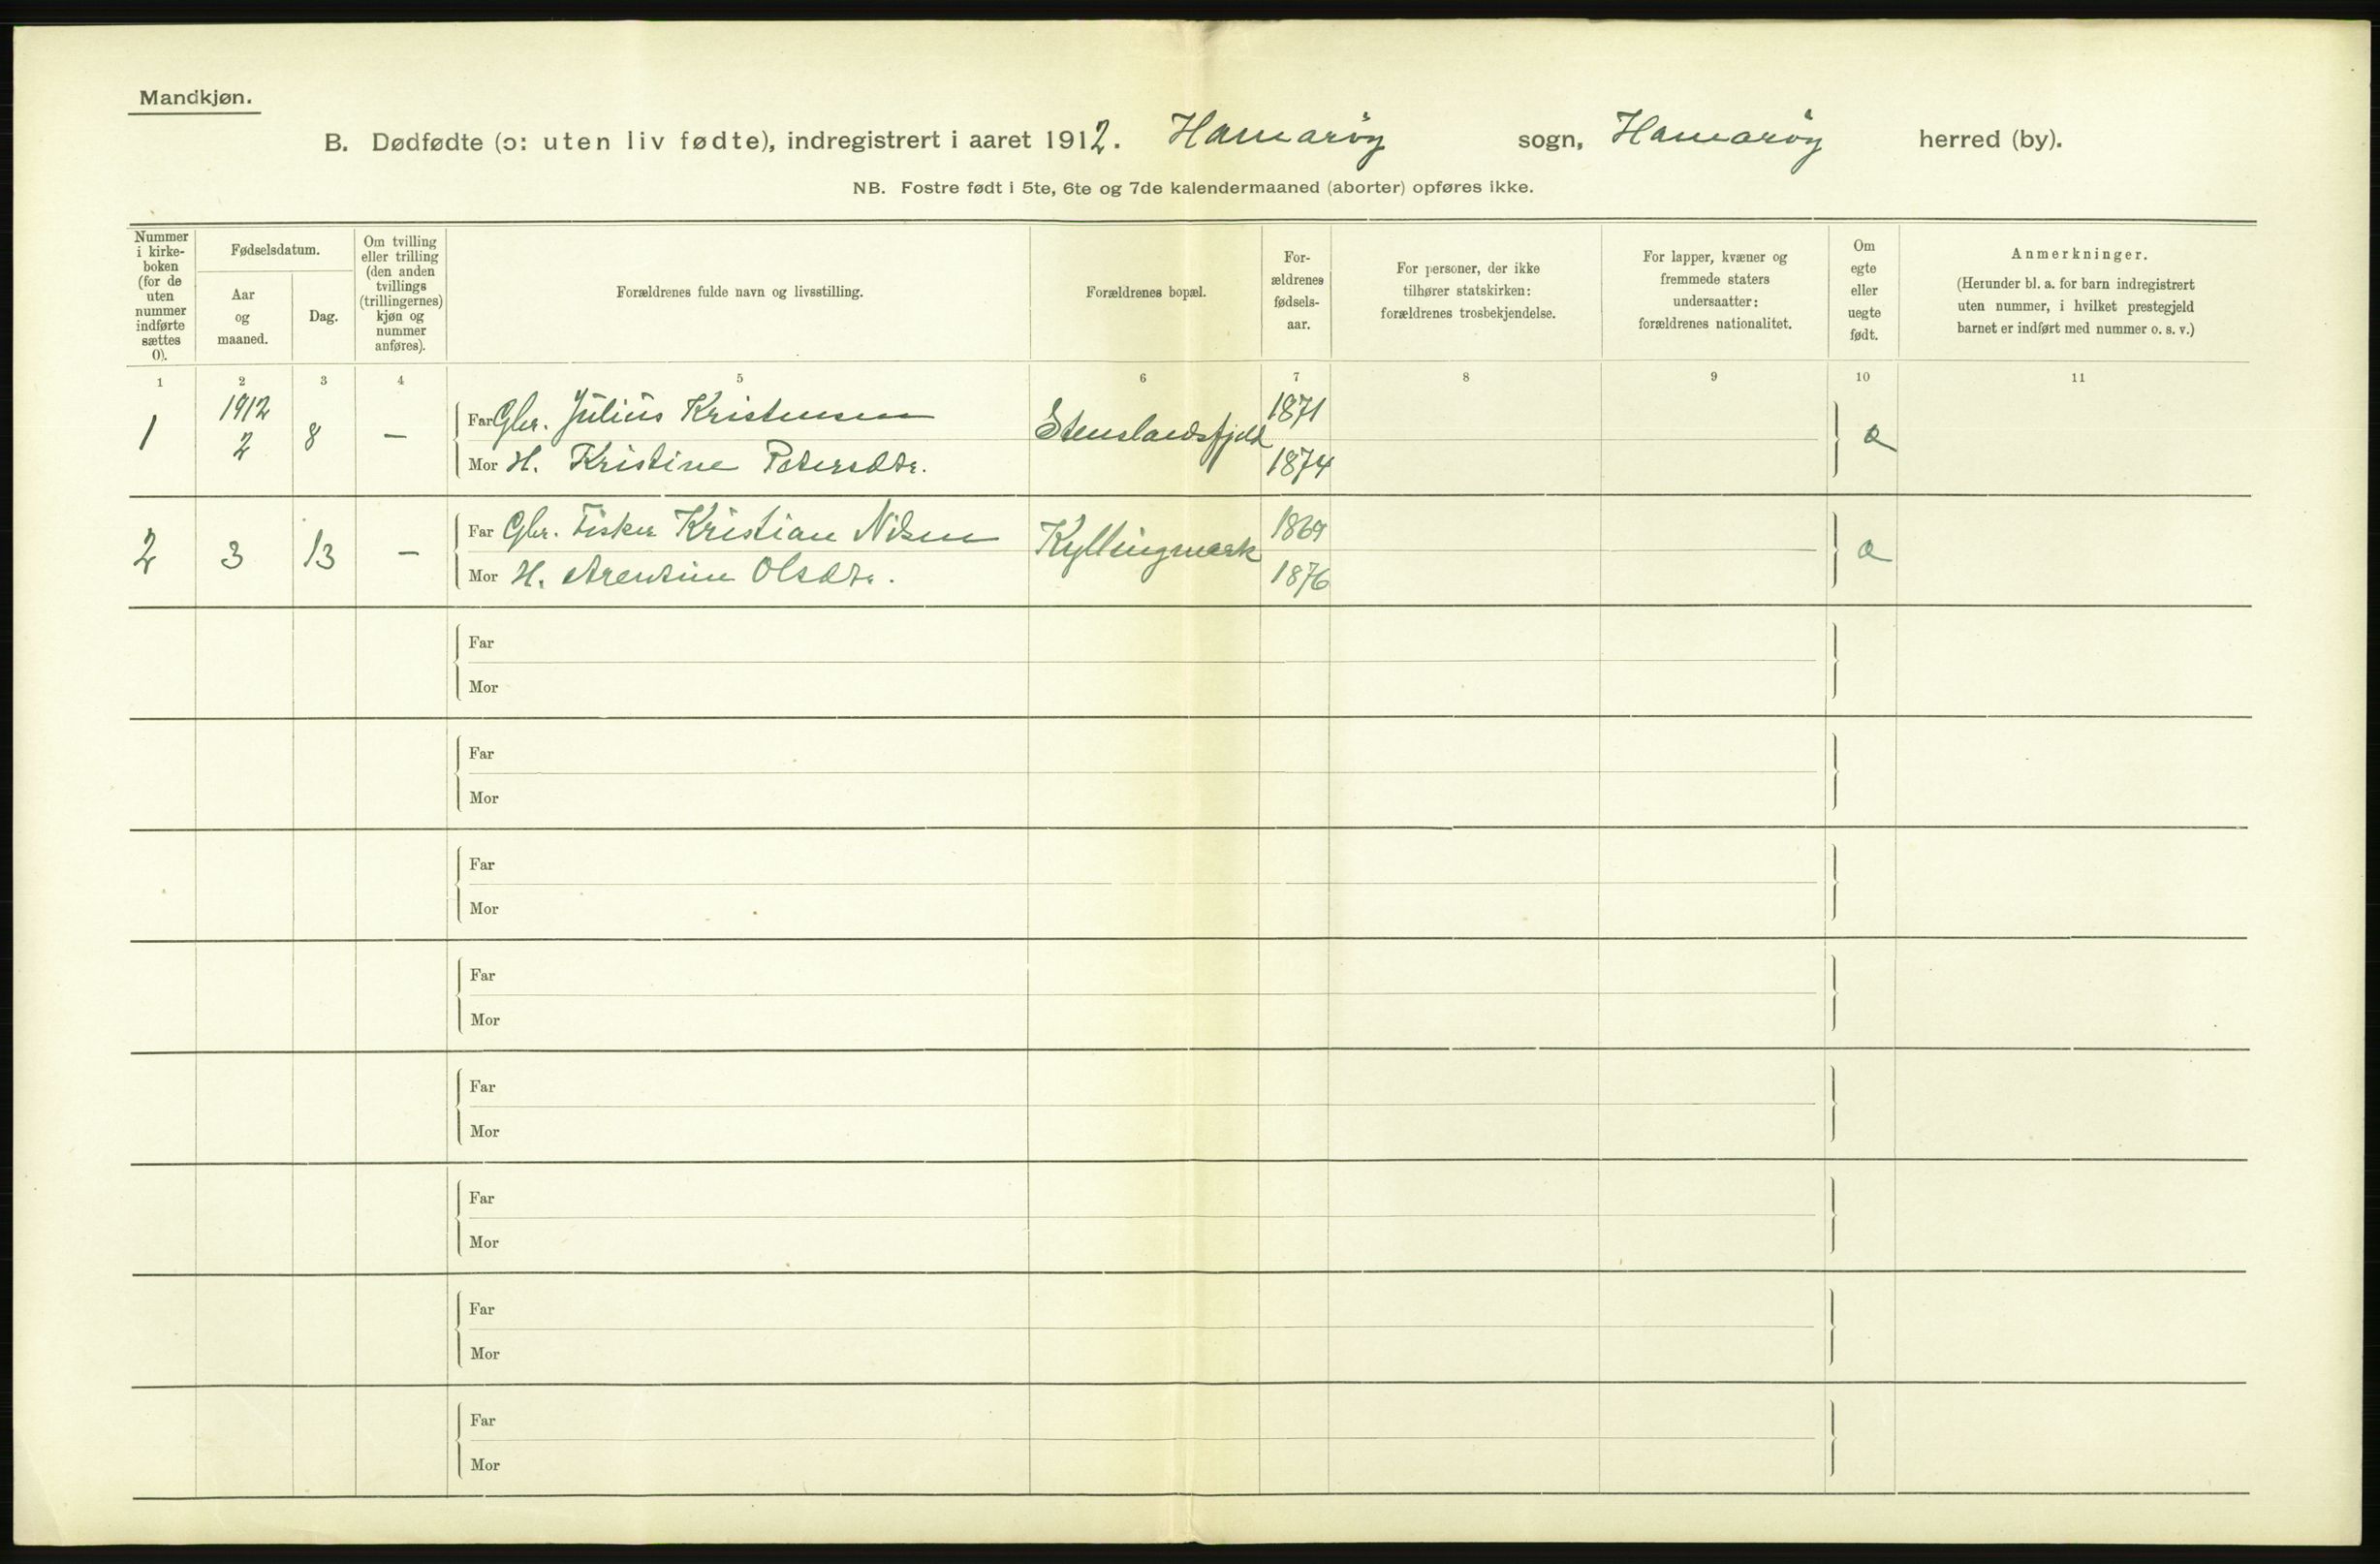 Mandkjøn.
B. Dødfødte (ɔ: uten liv fødte), indregistrert i aaret 1912. Hamarøy sogn, Hamarøy herred (by).
NB. Fostre født i 5te, 6te og 7de kalendermaaned (aborter) opføres ikke.
Nummer i kirke-boken (for de uten nummer indførte sættes 0).
Fødselsdatum.
Aar og maaned.
Dag.
Om tvilling eller trilling (den anden tvillings (trillingernes) kjøn og nummer anføres).
Forældrenes fulde navn og livsstilling.
Forældrenes bopæl.
For-ældrenes fødsels-aar.
For personer, der ikke tilhører statskirken: forældrenes trosbekjendelse.
For lapper, kvæner og fremmede staters undersaatter: forældrenes nationalitet.
Om egte eller uegte født.
Anmerkninger.
(Herunder bl. a. for barn indregistrert uten nummer, i hvilket prestegjeld barnet er indført med nummer o. s. v.)
1 2 3 4 5 6 7 8 9 10 11
1 1912 2 8 — Far Gbr. Julius Kristensen Stenslandsfjeld 1871
Mor H. Kristine Petersdtr. 1874
2 3 13 — Far Gbr. Fisker Kristian Nilsen Kyllingmark 1869
Mor H. Arentine Olsdtr. 1876
Far
Mor
Far
Mor
Far
Mor
Far
Mor
Far
Mor
Far
Mor
Far
Mor
Far
Mor